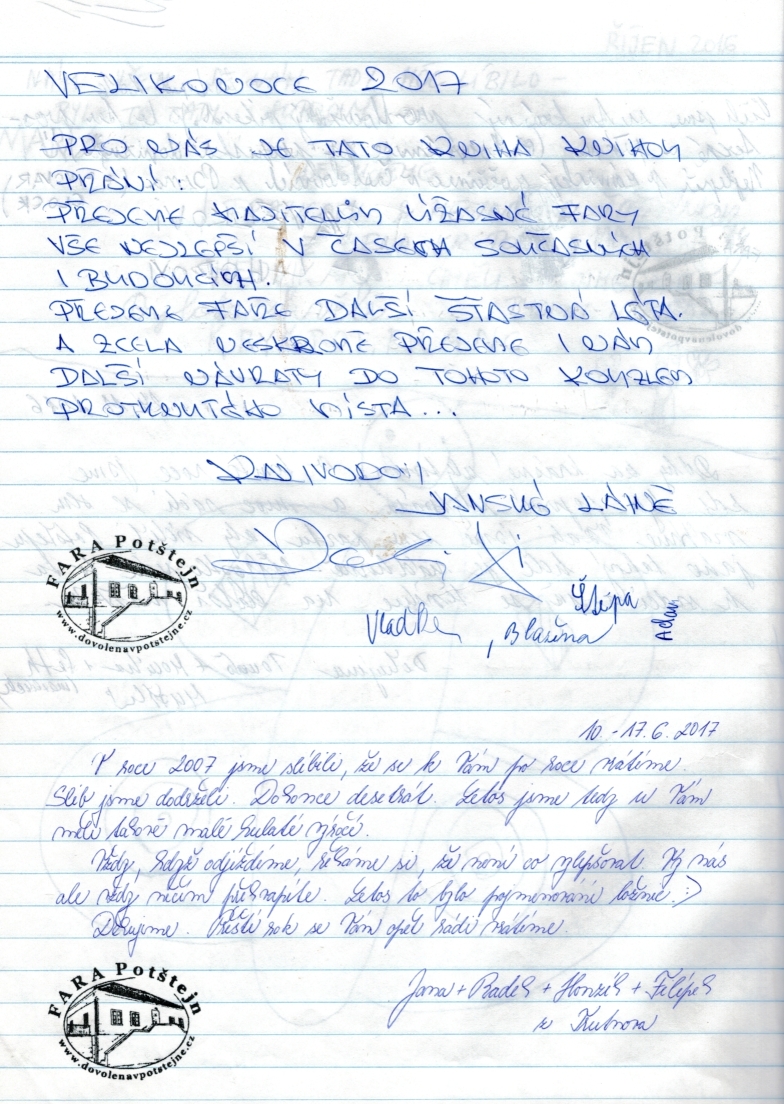 VELIKONOCE 2017
PRO NÁS JE TATO KNIHA KNIHOU
PŘÁNÍ:
PŘEJEME MAJITELŮM ÚŽASNÉ FARY
VŠE NEJLEPŠÍ V ČASECH SOUČASNÝCH
I BUDOUCÍCH.
PŘEJEME FAŘE DALŠÍ ŠŤASTNÁ LÉTA.
A ZCELA NESKROMĚ PŘEJEME I NÁM
DALŠÍ NÁVRATY DO TOHOTO KOUZLEM
PROTKNUTÉHO MÍSTA...
KALIVODOJI
JANSKÉ LÁZNĚ
Štěpa
Vladka, Blažena Adam
FARA Potštejn
www.dovolenavpotstejne.cz
10. - 17. 6. 2017
V roce 2007 jsme slíbili, že se k Vám po roce vrátíme.
Slib jsme dodrželi. Dokonce desetkrát. Letos jsme tedy u Vám
měli takové malé kulaté výročí.
Vždy, když odjíždíme, říkáme si, že není co zlepšovat. Vy nás
ale vždy něčím překvapíte. Letos to bylo pojmenování ložnic :)
Děkujeme. Příští rok se k Vám opět rádi vrátíme.
Jana + Radek + Honzík + Filípek
z
FARA Potštejn
www.dovolenavpotstejne.cz